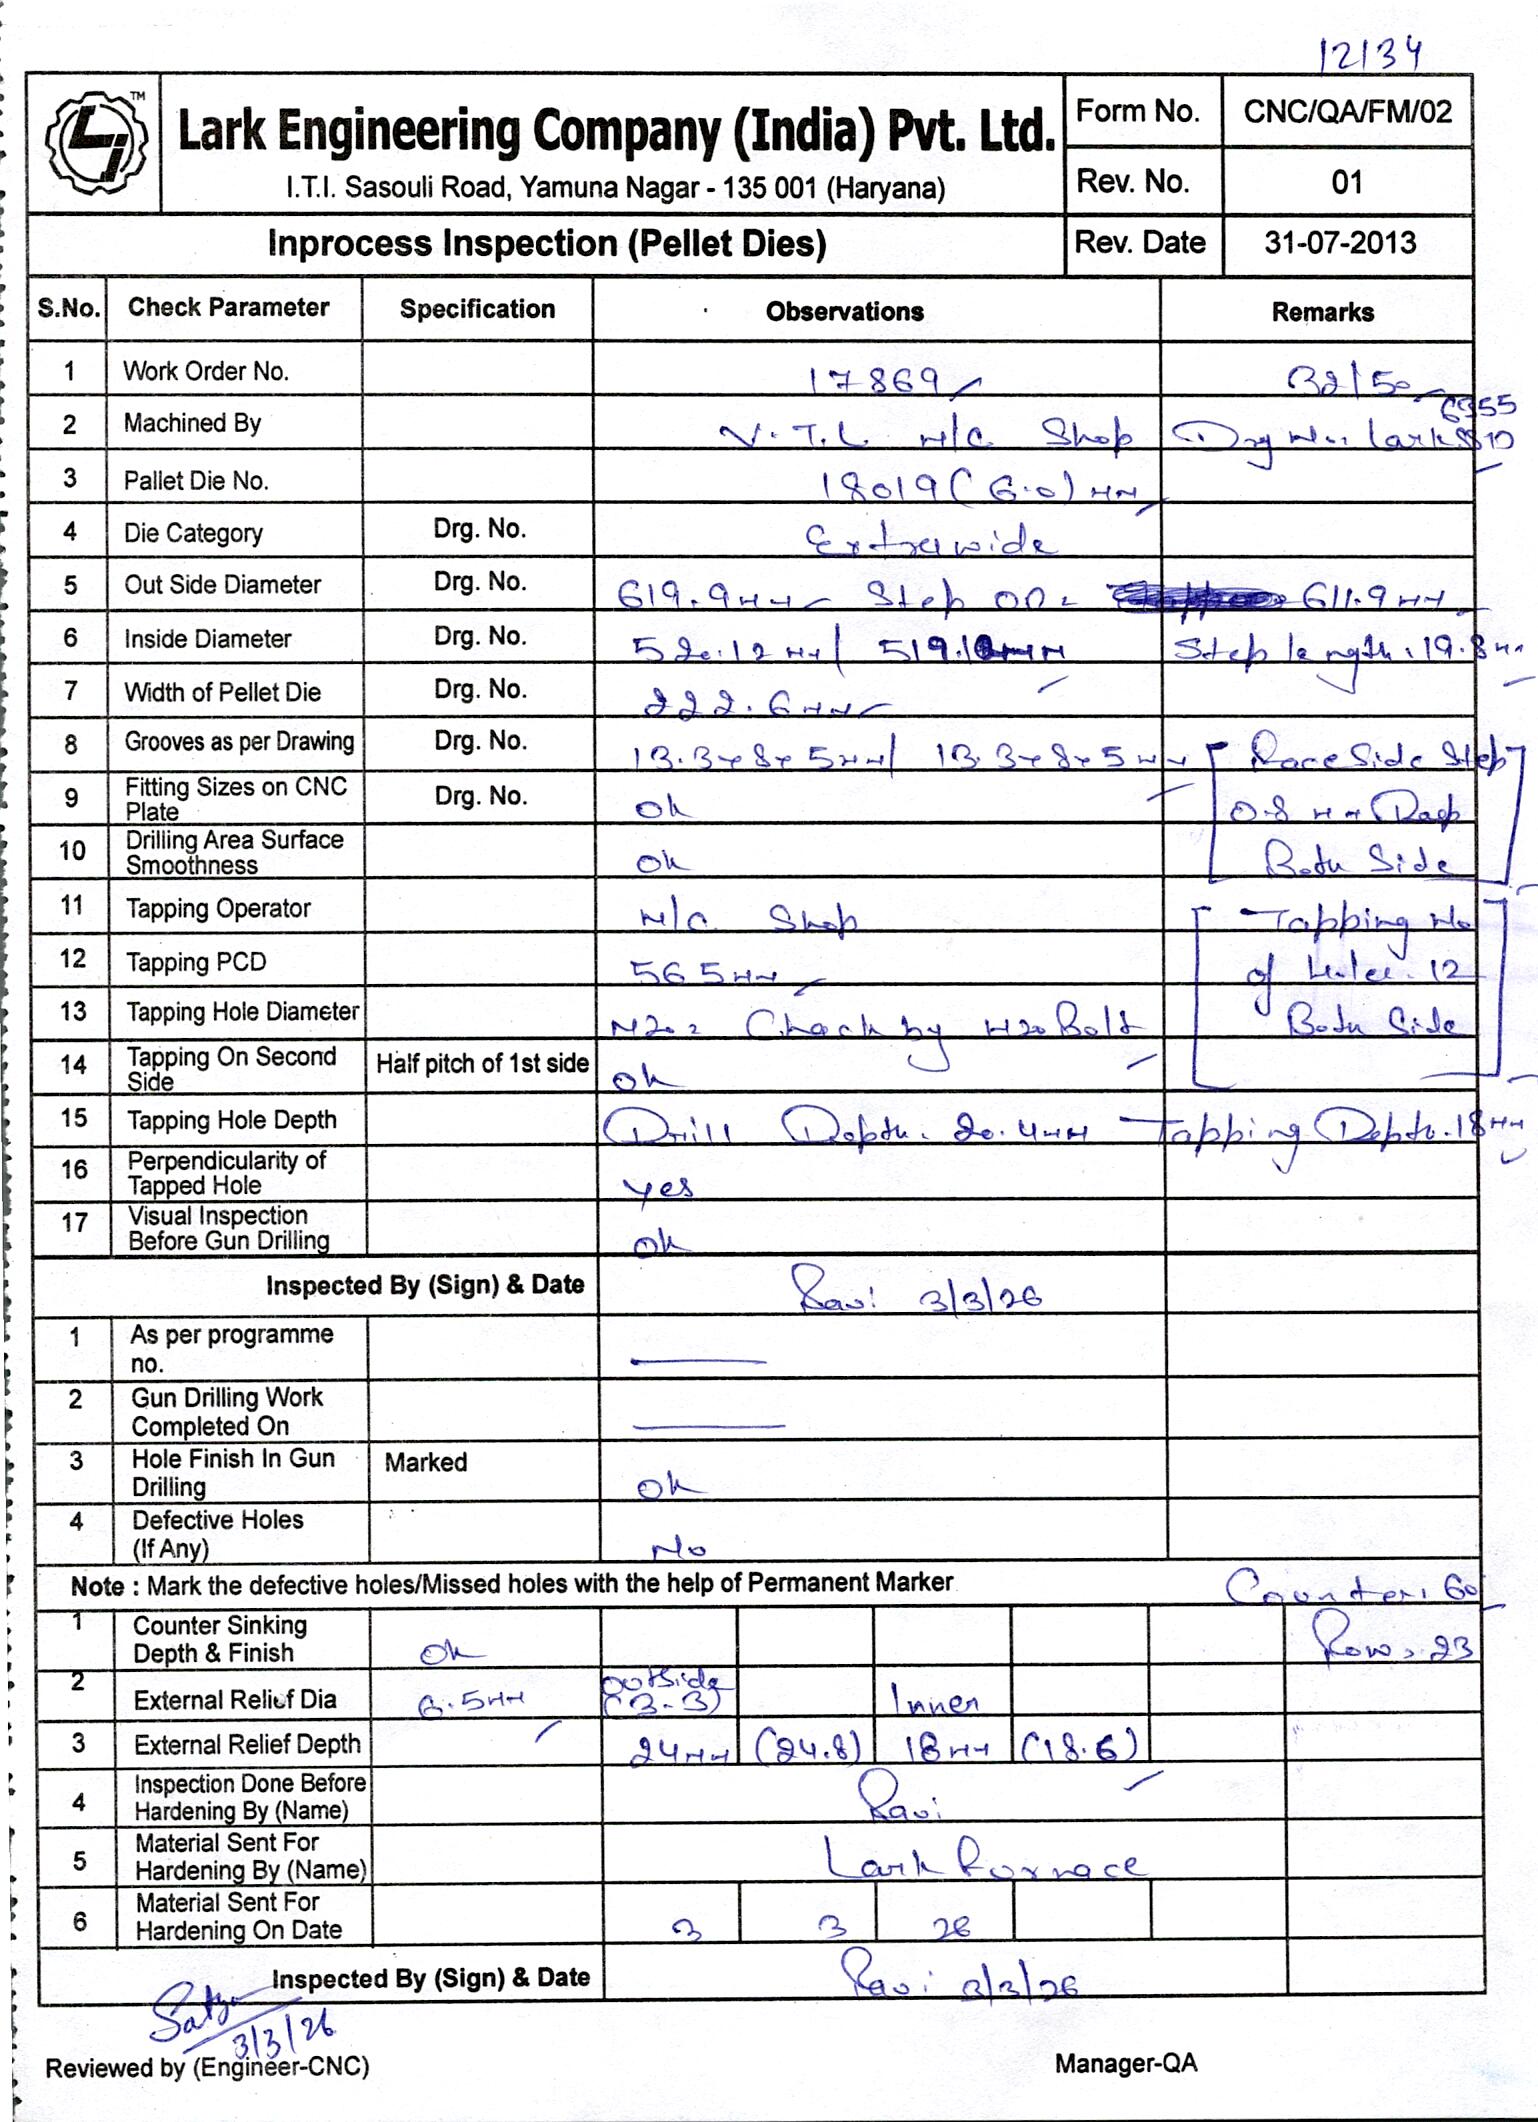 12134
TM
Lark Engineering Company (India) Pvt. Ltd.
I.T.I. Sasouli Road, Yamuna Nagar - 135 001 (Haryana)
Form No. CNC/QA/FM/02
Rev. No. 01
Inprocess Inspection (Pellet Dies) Rev. Date 31-07-2013
S.No. Check Parameter Specification Observations Remarks
1 Work Order No. 17869 B2/50
2 Machined By V.T.L M/C Shop Drg No. Lark
3 Pallet Die No. 18019 (6.0) MM
4 Die Category Drg. No. Extrawide
5 Out Side Diameter Drg. No. 619.9MM Step OD= 611.9MM
6 Inside Diameter Drg. No. 520.12MM/ Step length. 19.8MM
7 Width of Pellet Die Drg. No. 222.6MM
8 Grooves as per Drawing Drg. No. 13.3x8x5MM/ 13.3x8x5MM Race Side Step
9 Fitting Sizes on CNC Plate Drg. No. Ok 0.8 MM Deep
10 Drilling Area Surface Smoothness Ok Both Side
11 Tapping Operator M/C Shop Tapping No
12 Tapping PCD 565MM of Holes. 12
13 Tapping Hole Diameter M20= Check by M20 Bolt Both Side
14 Tapping On Second Side Half pitch of 1st side Ok
15 Tapping Hole Depth Drill Depth. 20.4MM Tapping Depth. 18MM
16 Perpendicularity of Tapped Hole Yes
17 Visual Inspection Before Gun Drilling Ok
Inspected By (Sign) & Date Ravi 3/3/26
1 As per programme no.
2 Gun Drilling Work Completed On
3 Hole Finish In Gun Drilling Marked Ok
4 Defective Holes (If Any) No
Note : Mark the defective holes/Missed holes with the help of Permanent Marker Counter. 60
1 Counter Sinking Depth & Finish Ok Row. 23
2 External Relief Dia 6.5MM Outside (3-3) Inner
3 External Relief Depth 24MM (24.8) 18MM (18.6)
4 Inspection Done Before Hardening By (Name) Ravi
5 Material Sent For Hardening By (Name) Lark Furnace
6 Material Sent For Hardening On Date 3 3 26
Inspected By (Sign) & Date Ravi 3/3/26
Satya
3/3/26
Reviewed by (Engineer-CNC) Manager-QA